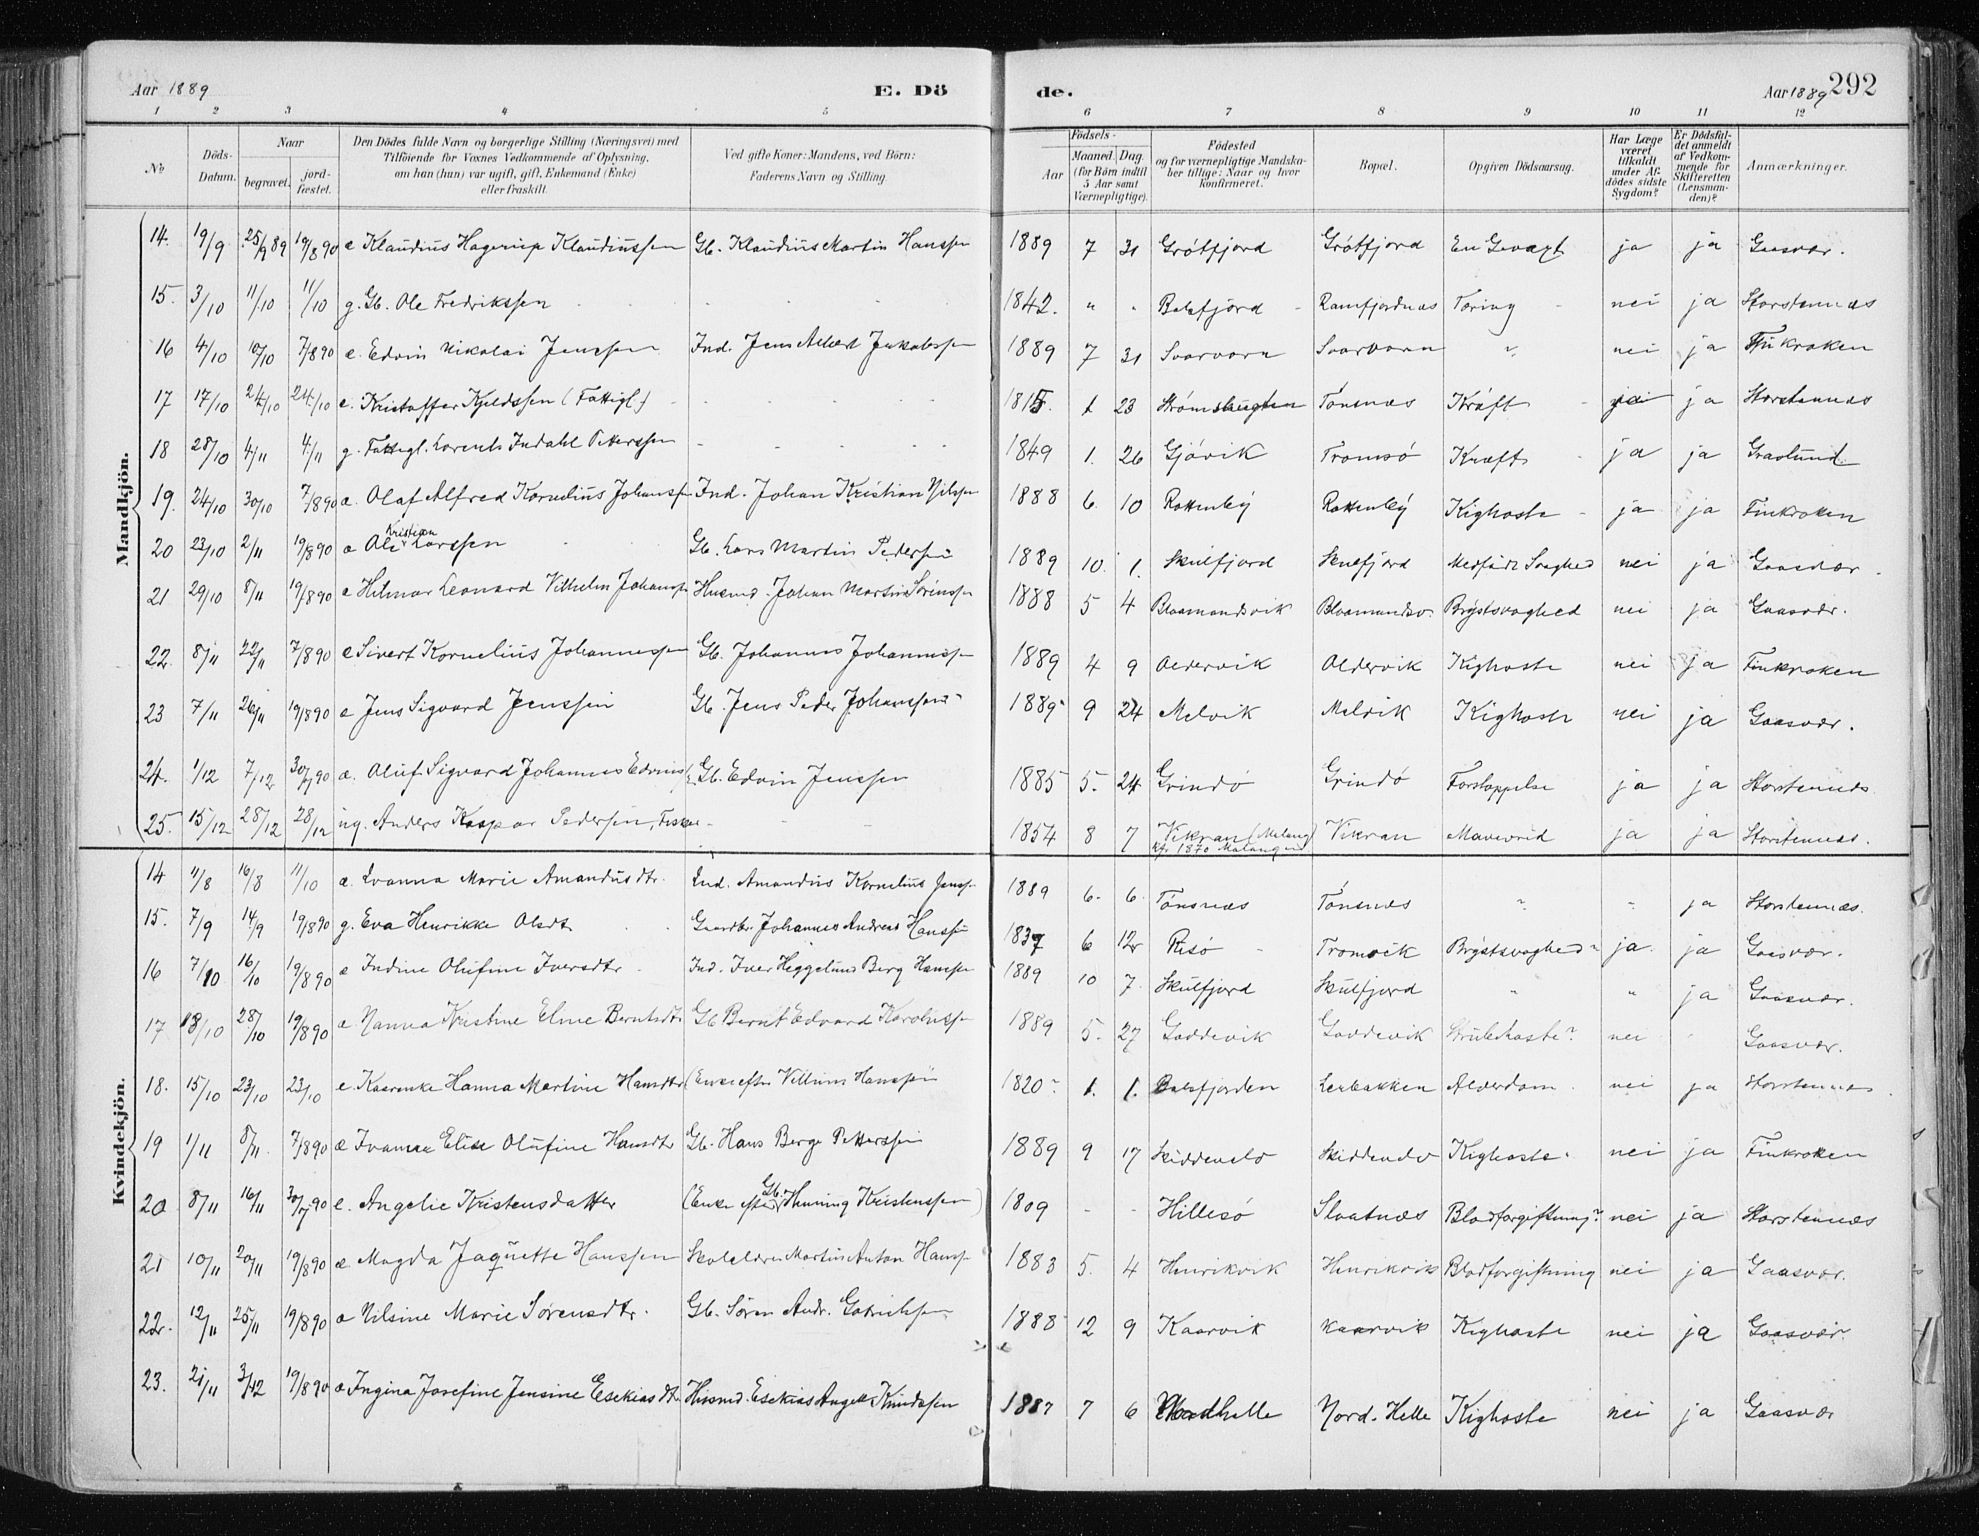 Aar 1889 E. Dö de. Aar 1889 292
1 2 3 4 5 6 7 8 9 10 11 12
No Döds-Datum. Naar begravet. jord-fæstet. Den Dödes fulde Navn og borgerlige Stilling (Næringsvei) med Tilföiende for Voxnes Vedkommende af Oplysning, om han (hun) var ugift, gift, Enkemand (Enke) eller fraskilt. Ved gifte Koner: Mandens, ved Börn: Faderens Navn og Stilling. Födsels- Aar Maaned. Dag. (for Börn indtil 5 Aar samt Værnepligtige). Födested og for værnepligtige Mandska-ber tillige: Naar og hvor konfirmeret. Bopæl. Opgiven Dödsaarsag. Har Læge været tilkaldt under Af-dödes sidste Sygdom? Er Dödsfal-det anmeldt af Vedkom-mende for Skifteretten (Lensman-den)? Anmærkninger.
Mandkjön.
14. 19/9 25/9 89 19/8 90 e Klaudius Hagerup Klaudiussen Gb. Klaudius Martin Hanssen 1889 7 31 Grötfjord Grötfjord En Gevæxt ja ja Gaasvær.
15. 3/10 11/10 11/10 g. Gb. Ole Fredrikssen 1842. " " Balsfjord Ramfjordnæs Tæring nei ja Storstennæs
16 4/10 10/10 7/8 90 e. Edvin Nikolai Jenssen Ind. Jens Albert Jakobssen 1889 7 31 Svarvaren Svarvaren " nei ja Finkroken
17 17/10 24/10 24/10 e. Kristoffer Kjeldssen (Fattigl.) 1815. 1 23 Strömshugten Tönsnæs Kræft ja ja Storstennæs
18 28/10 4/11 4/11 g. Fattigl. Lorents Indahl Peterssen 1849 1. 26 Gjövik Tromsö Kræft ja ja Grønlund
19. 24/10 30/10 7/8 90 æ. Olaf Alfred Kornelius Johanssen Ind. Johan Kristian Nilssen 1888 6. 10 Rottenby Rottenby Kighoste ja ja Finkroken
20 23/10 2/11 19/8 90 æ Ole Kristian Larssen Gb. Lars Martin Pederssen 1889 10. 1. Skulfjord Skulfjord Medfödt Svaghed nei ja Gaasvær.
21 29/10 8/11 19/8 90 e Hilmar Leonard Vilhelm Johanssen Husmd. Johan Martin Sörenssen 1888 5 4 Blaamandsvik Blaamandsv. Brystsvaghed nei ja Gaasvær.
22. 8/11 22/11 7/8 90 e Sivert Kornelius Johannessen Gb. Johannes Johannessen 1889 4 9 Oldervik Oldervik Kighoste nei ja Finkroken
23 7/11 26/11 19/8 90 e Jens Sigvard Jenssen Gb. Jens Peder Johanssen 1889 9 24 Melvik Melvik Kighoste nei ja Gaasvær.
24. 1/12 7/12 30/7 90 æ. Oluf Sigvard Johannes Edvins. Gb. Edvin Jenssen 1885 5. 24 Grindö Grindö Forstoppelse ja ja Storstennæs
25. 15/12 28/12 28/12 ug. Anders Kaspar Pedersen, Fisker 1854 8 7 Vikran (Malang) kfr. 1870 Malangen Vikran Mavevrid ja ja Storstennæs.
Kvindekjön.
14 11/8 16/8 11/10 æ. Ivanna Marie Amandusdtr. Ind. Amandus Kornelius Jenssen 1889 6. 6. Tönsnæs Tönsnæs " " ja Storstennæs.
15. 7/9 14/9 19/8 90 g. Eva Henrikke Olsdt Gaardbr. Johannes Andreas Hanssen 1837 6 12 Risö Tromvik Brystsvaghed ja ja Gaasvær.
16 7/10 16/10 19/8 90 e Indine Olufine Iversdtr. Ind. Iver Heggelund Berg Hanssen 1889 10 7. Skulfjord Skulfjord " " ja Gaasvær.
17 18/10 28/10 19/8 90 æ Nanna Kristine Eline Berntsdtr Gb Bernt Edvard Karolussen 1889 5. 27 Gaddevik Gaddevik Strubehoste? nei Gaasvær.
18. 15/10 23/10 23/10 e Kaarenke Hanna Martine Hansdtr (Enke efter Villum Hanssen 1820 1. 1. Balsfjorden Leerbakken Alderdom nei ja Storstennæs.
19 1/11 8/11 7/8 90 æ Ivanna Elise Olufine Hansdtr Gb. Hans Berge Petterssen 1889 9 17 Skiddenelv Skiddenelv Kighoste. nei ja Finkroken
20 8/11 16/11 30/7 90 e. Angelie Kristensdatter (Enke efter Gb. Henning Kristenssen) 1809 Hillesö Slaatnæs Blodforgiftning? nei ja Storstennæs
21 10/11 20/11 19/8 90 æ. Magda Jaquette Hanssen Skolelærer Martin Anton Hanssen 1883 5. 4 Henrikvik Henrikvik Blodforgiftning nei ja Gaasvær.
22. 12/11 25/11 19/8 90 æ Nilsine Marie Sörensdtr. Gb. Sören Andr. Gotrikssen 1888 12 9 Kaarvik Kaarvik Kighoste nei ja Gaasvær.
23. 21/11 3/12 19/8 90 æ Ingina Josefine Jensine Esekiasdtr. Husmd. Esekias Angell Knudssen 1887 7 6 Nordhelle Nord-Helle Kighoste nei ja Gaasvær